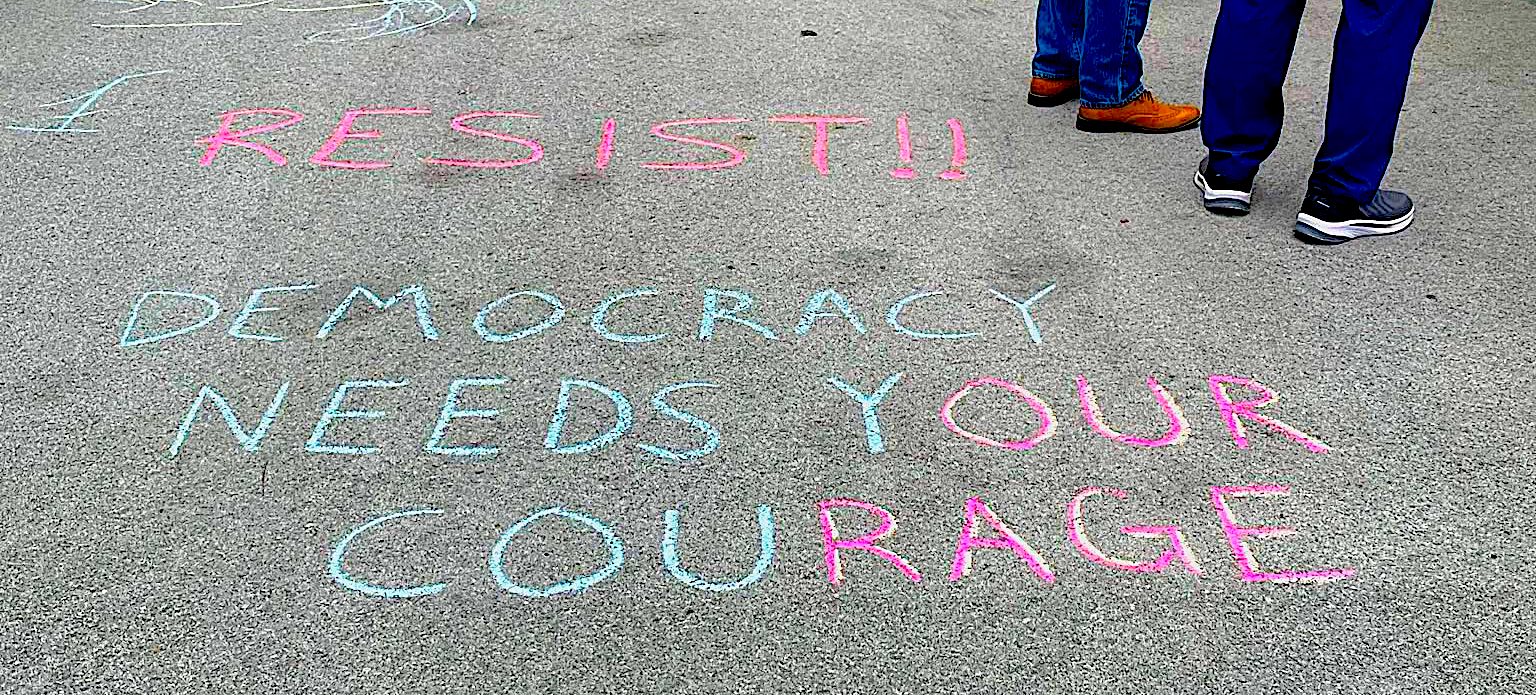 RESIST!!
DEMOCRACY
NEEDS YOUR
COURAGE